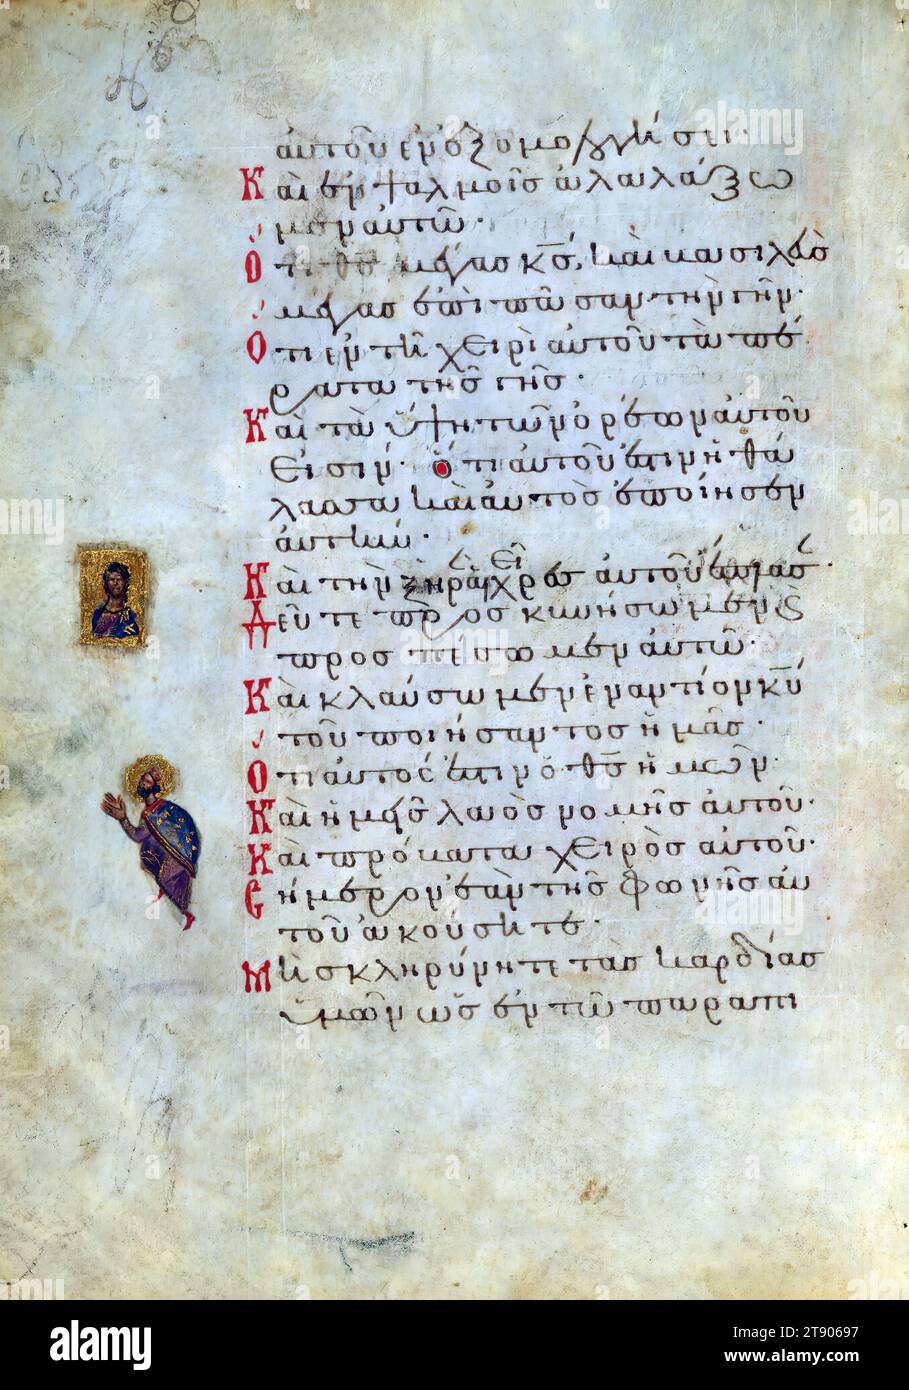 αὐτοῦ ἐν ἐξομολογήσει·
Καὶ ἐν ψαλμοῖς ἀλαλάξω
μεν αὐτῶ·
Ὅτι θς μέγας κς, καὶ βασιλεὺς
μέγας ἐπὶ πᾶσαν τὴν γῆν·
Ὅτι ἐν τῆ χειρὶ αὐτοῦ τὰ πέ
ρατα τῆς γῆς·
Καὶ τὰ ὕψη τῶν ὀρέων αὐτοῦ
εἰσίν· Ὅτι αὐτοῦ ἐστιν ἡ θά
λασσα καὶ αὐτὸς ἐποίησεν
αὐτήν·
Καὶ τὴν ξηρὰν χεῖρες αὐτοῦ
Δεῦτε προσκυνήσωμεν καὶ
προσπέσωμεν αὐτῶ·
Καὶ κλαύσωμεν ἐναντίον κυ
τοῦ ποιήσαντος ἡμᾶς·
Ὅτι αὐτός ἐστιν ὁ θς ἡμῶν·
Καὶ ἡμεῖς λαὸς νομῆς αὐτοῦ·
Καὶ πρόβατα χειρὸς αὐτοῦ·
Σήμερον ἐὰν τῆς φωνῆς αὐ
τοῦ ἀκούσητε·
Μὴ σκληρύνητε τὰς καρδίας
ὑμῶν ὡς ἐν τῶ παραπι
alamy
Image ID: 2T90697
www.alamy.com